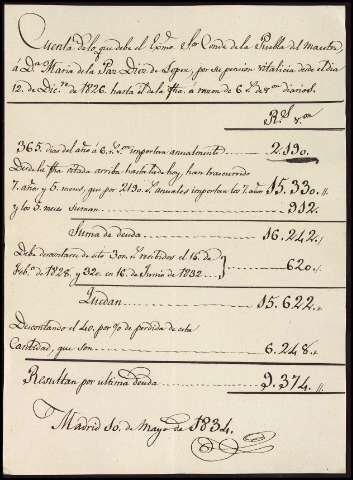 Cuenta de lo que debe el Exmo. Sor. Conde de la Puebla del Maestre,
á Da. Maria de la Paz Dior de Lopez, por su pension vitalicia desde el dia
12. de Dicre. de 1826. hasta el de la fha. a razon de 6. rs. de von. diarios.
Rs. von.
365. dias del año á 6. rs. von. importan anualmente 2.190.
Desde la fha. citada arriba hasta la de hoy, han trascurrido
7. años y 5. meses, que por 2190. rs. anuales importan los 7. años 15.330.
y los 5. meses suman 912.
Suma de deuda 16.242.
Debe descontarse de esto 300. rs. recibidos el 16. de
Febo. de 1828. y 320. en 16. de Junio de 1832. } 620.
Quedan 15.622.
Descontando el 40. por %. de perdida de esta
Cantidad, que son 6.248.
Resultan por ultima deuda 9.374.
Madrid 10. de mayo de 1834.